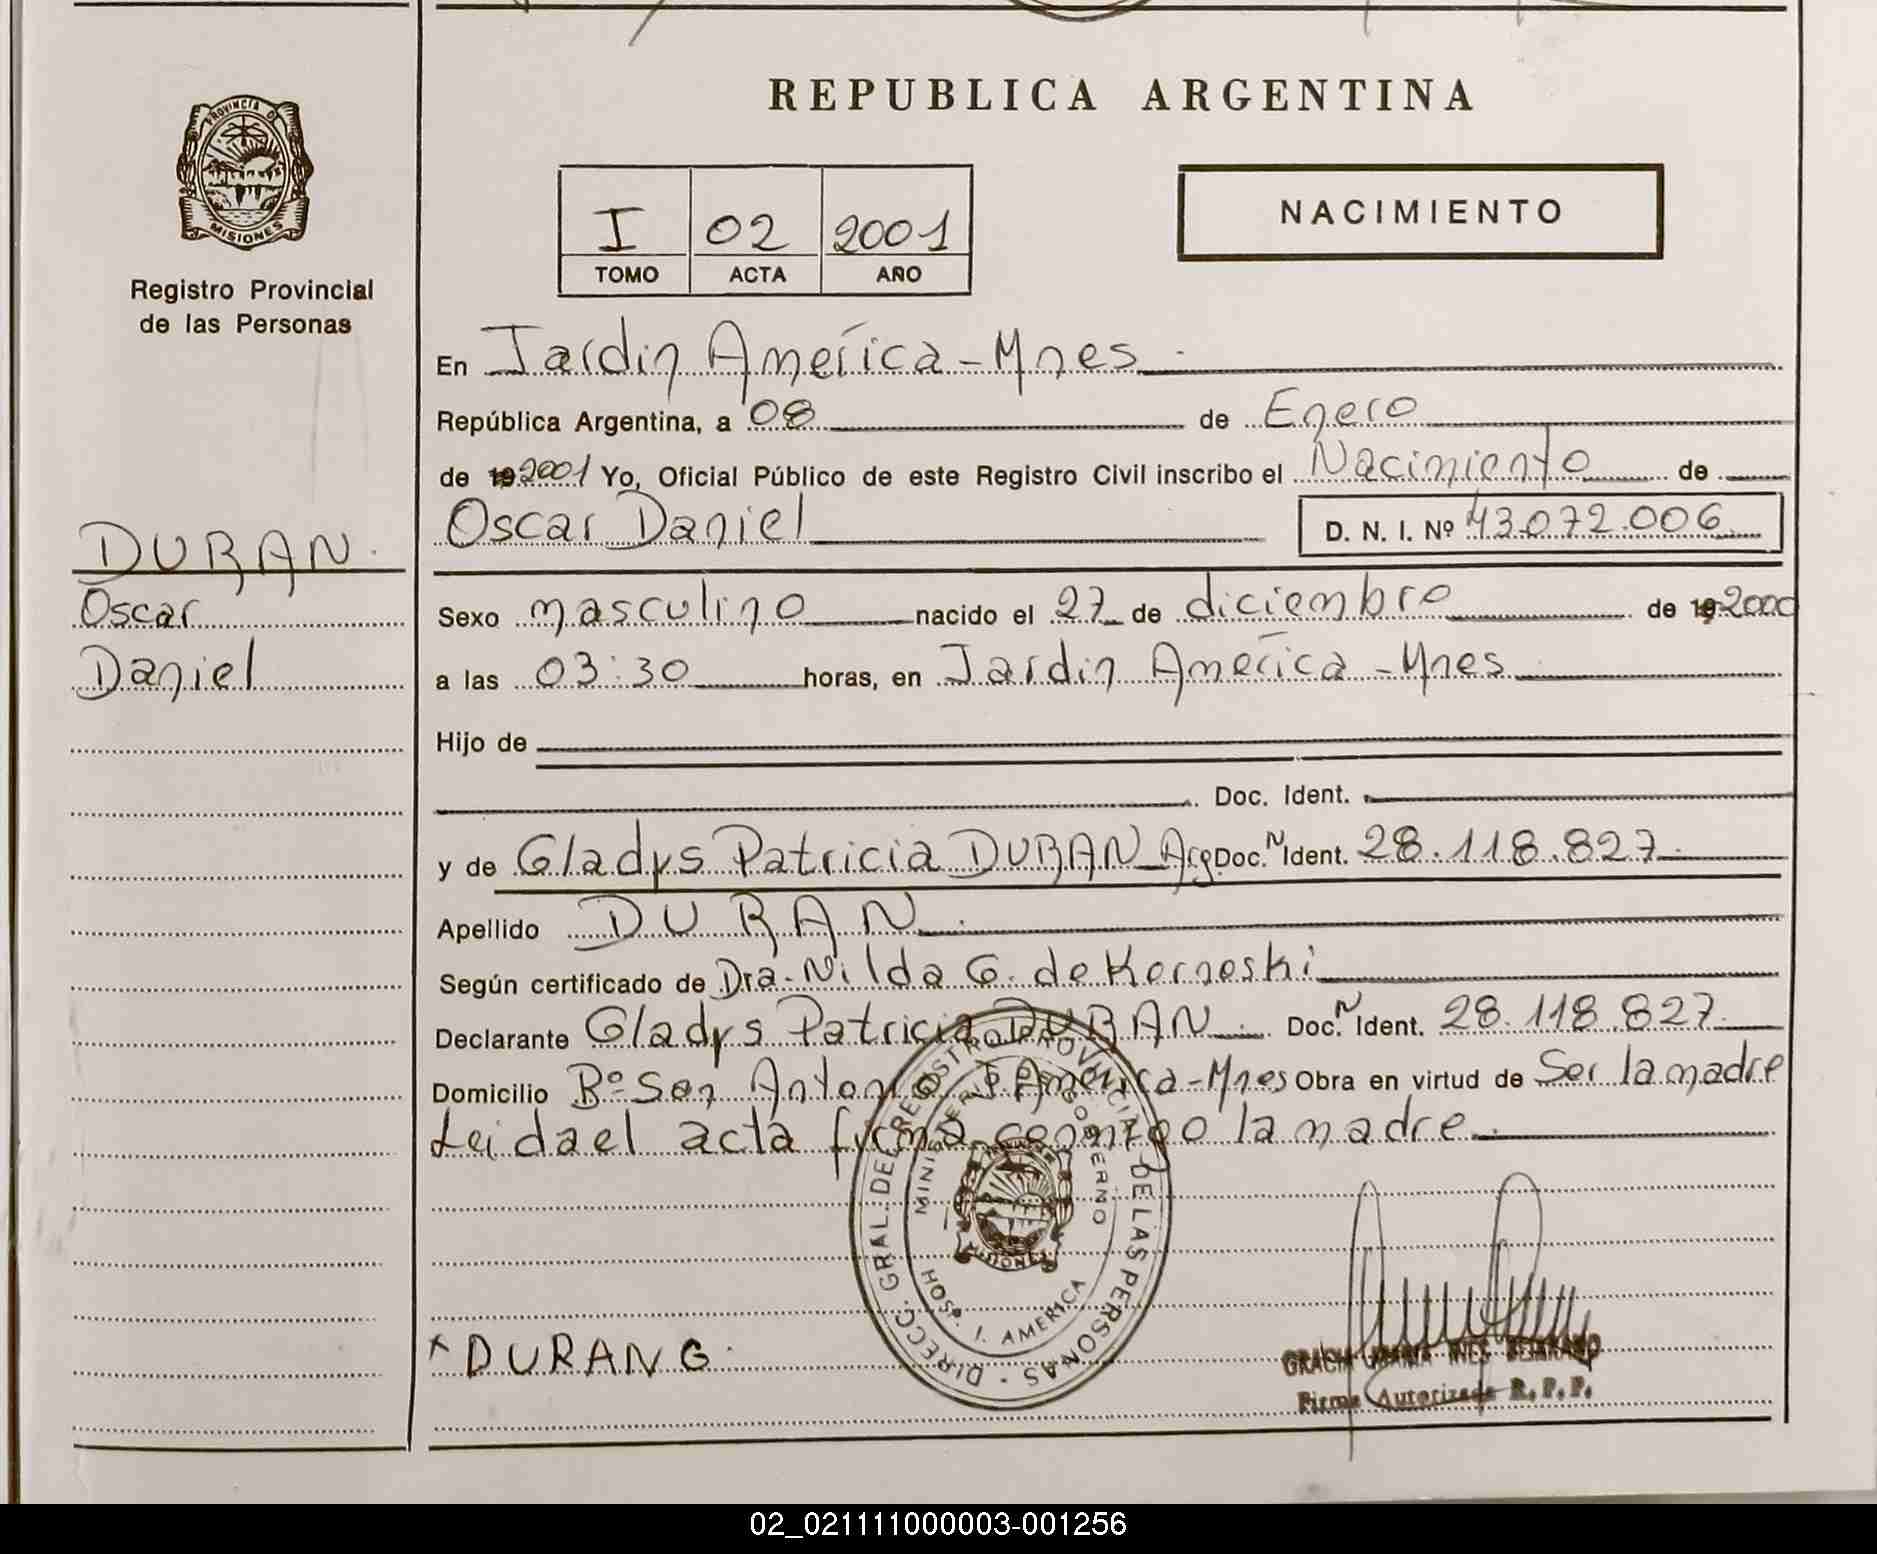 REPUBLICA ARGENTINA
PROVINCIA DE
MISIONES
Registro Provincial
de las Personas
I 02 2001
TOMO ACTA AÑO
NACIMIENTO
En Jardin América - Mnes
República Argentina, a 08 de Enero
de 19 2001 Yo, Oficial Público de este Registro Civil inscribo el Nacimiento de
Oscar Daniel D. N. I. Nº 43.072.006
DURAN
Oscar
Daniel
Sexo masculino nacido el 27 de diciembre de 19 2000
a las 03:30 horas, en Jardin América - Mnes
Hijo de
Doc. Ident.
y de Gladys Patricia DURAN Arg Doc. N Ident. 28.118.827
Apellido DURAN
Según certificado de Dra. Nilda G. de Korneski
Declarante Gladys Patricia DURAN Doc. N Ident. 28.118.827
Domicilio Bº San Antonio J. América - Mnes Obra en virtud de Ser la madre
Leida el acta firma conmigo la madre
DIRECC. GRAL. DEL REGISTRO PROVINCIAL DE LAS PERSONAS
MINISTERIO DE GOBIERNO
MISIONES
HOSP. J. AMERICA
x DURAN G.
Firma Autorizada R. P. P.
02_021111000003-001256